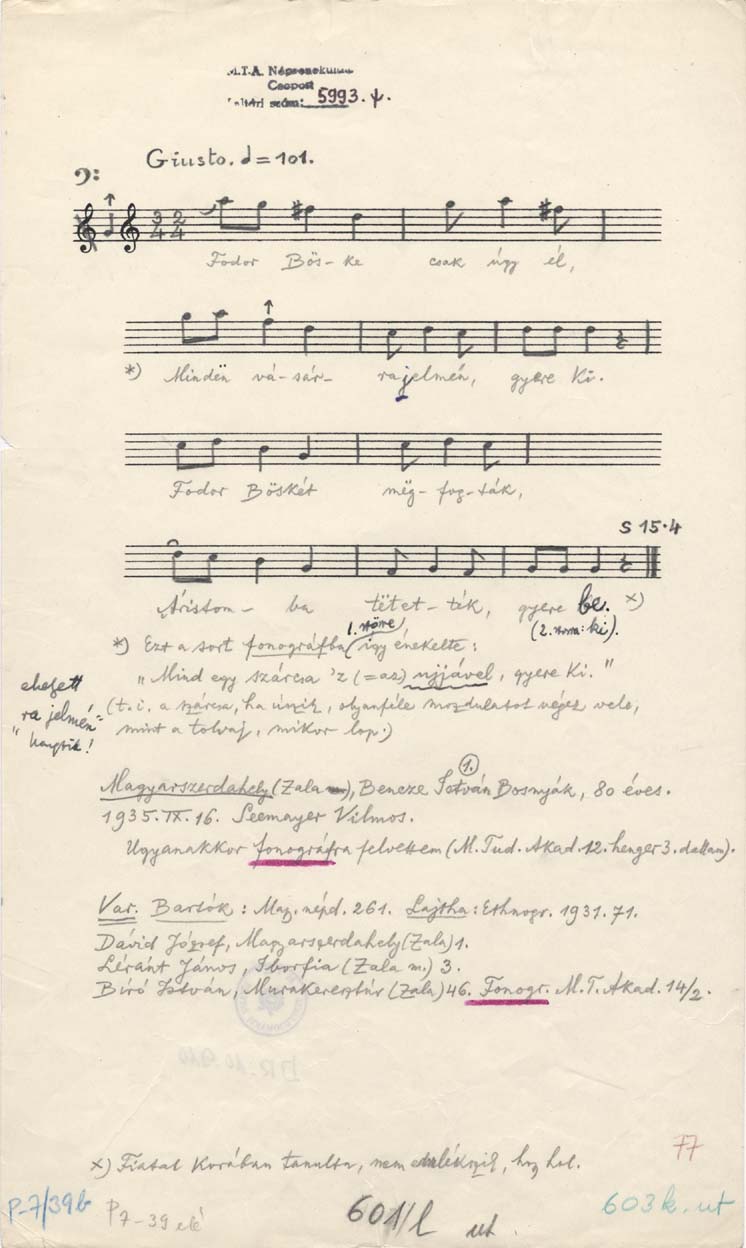 M.T.A. Népzenekutató
Csoport
Leltári szám: 5993. ψ.
Giusto. = 101.
3/4 2/4
Fodor Bös-ke csak úgy él,
*) Mindën vá-sár- rajelmén, gyere ki.
Fodor Böskét mëg-fog-ták,
S 15.4
Áristom- ba tëtet-ték, gyere be. ×)
(2. strna: ki).
1. störe
*) Ezt a sort fonográfba így énekelte:
„Mind egy szárcsa 'z (=az) ujjával, gyere ki."
(t.i. a szárcsa, ha úszik, olyanféle mozdulatot végez vele,
mint a tolvaj, mikor lop.)
ehelyett
„ra jelmén"
hangzik!
1.
Magyarszerdahely (Zala), Bencze István Bosnyák, 80 éves.
1935. IX. 16. Seemayer Vilmos.
Ugyanakkor fonográfra felvettem (M. Tud. Akad. 12. henger 3. dallam).
Var. Bartók: Mag. népd. 261. Lajtha: Ethnogr. 1931. 71.
Dávid József, Magyarszerdahely (Zala) 1.
Léránt János, Iborfia (Zala m.) 3.
Bíró István, Murakeresztúr (Zala) 46. Fonogr. M. T. Akad. 14/2.
×) Fiatal korában tanulta, nem emlékszik, hog hol.
77
P-7/39b
P7-39 elé
601/l ut
603k. ut